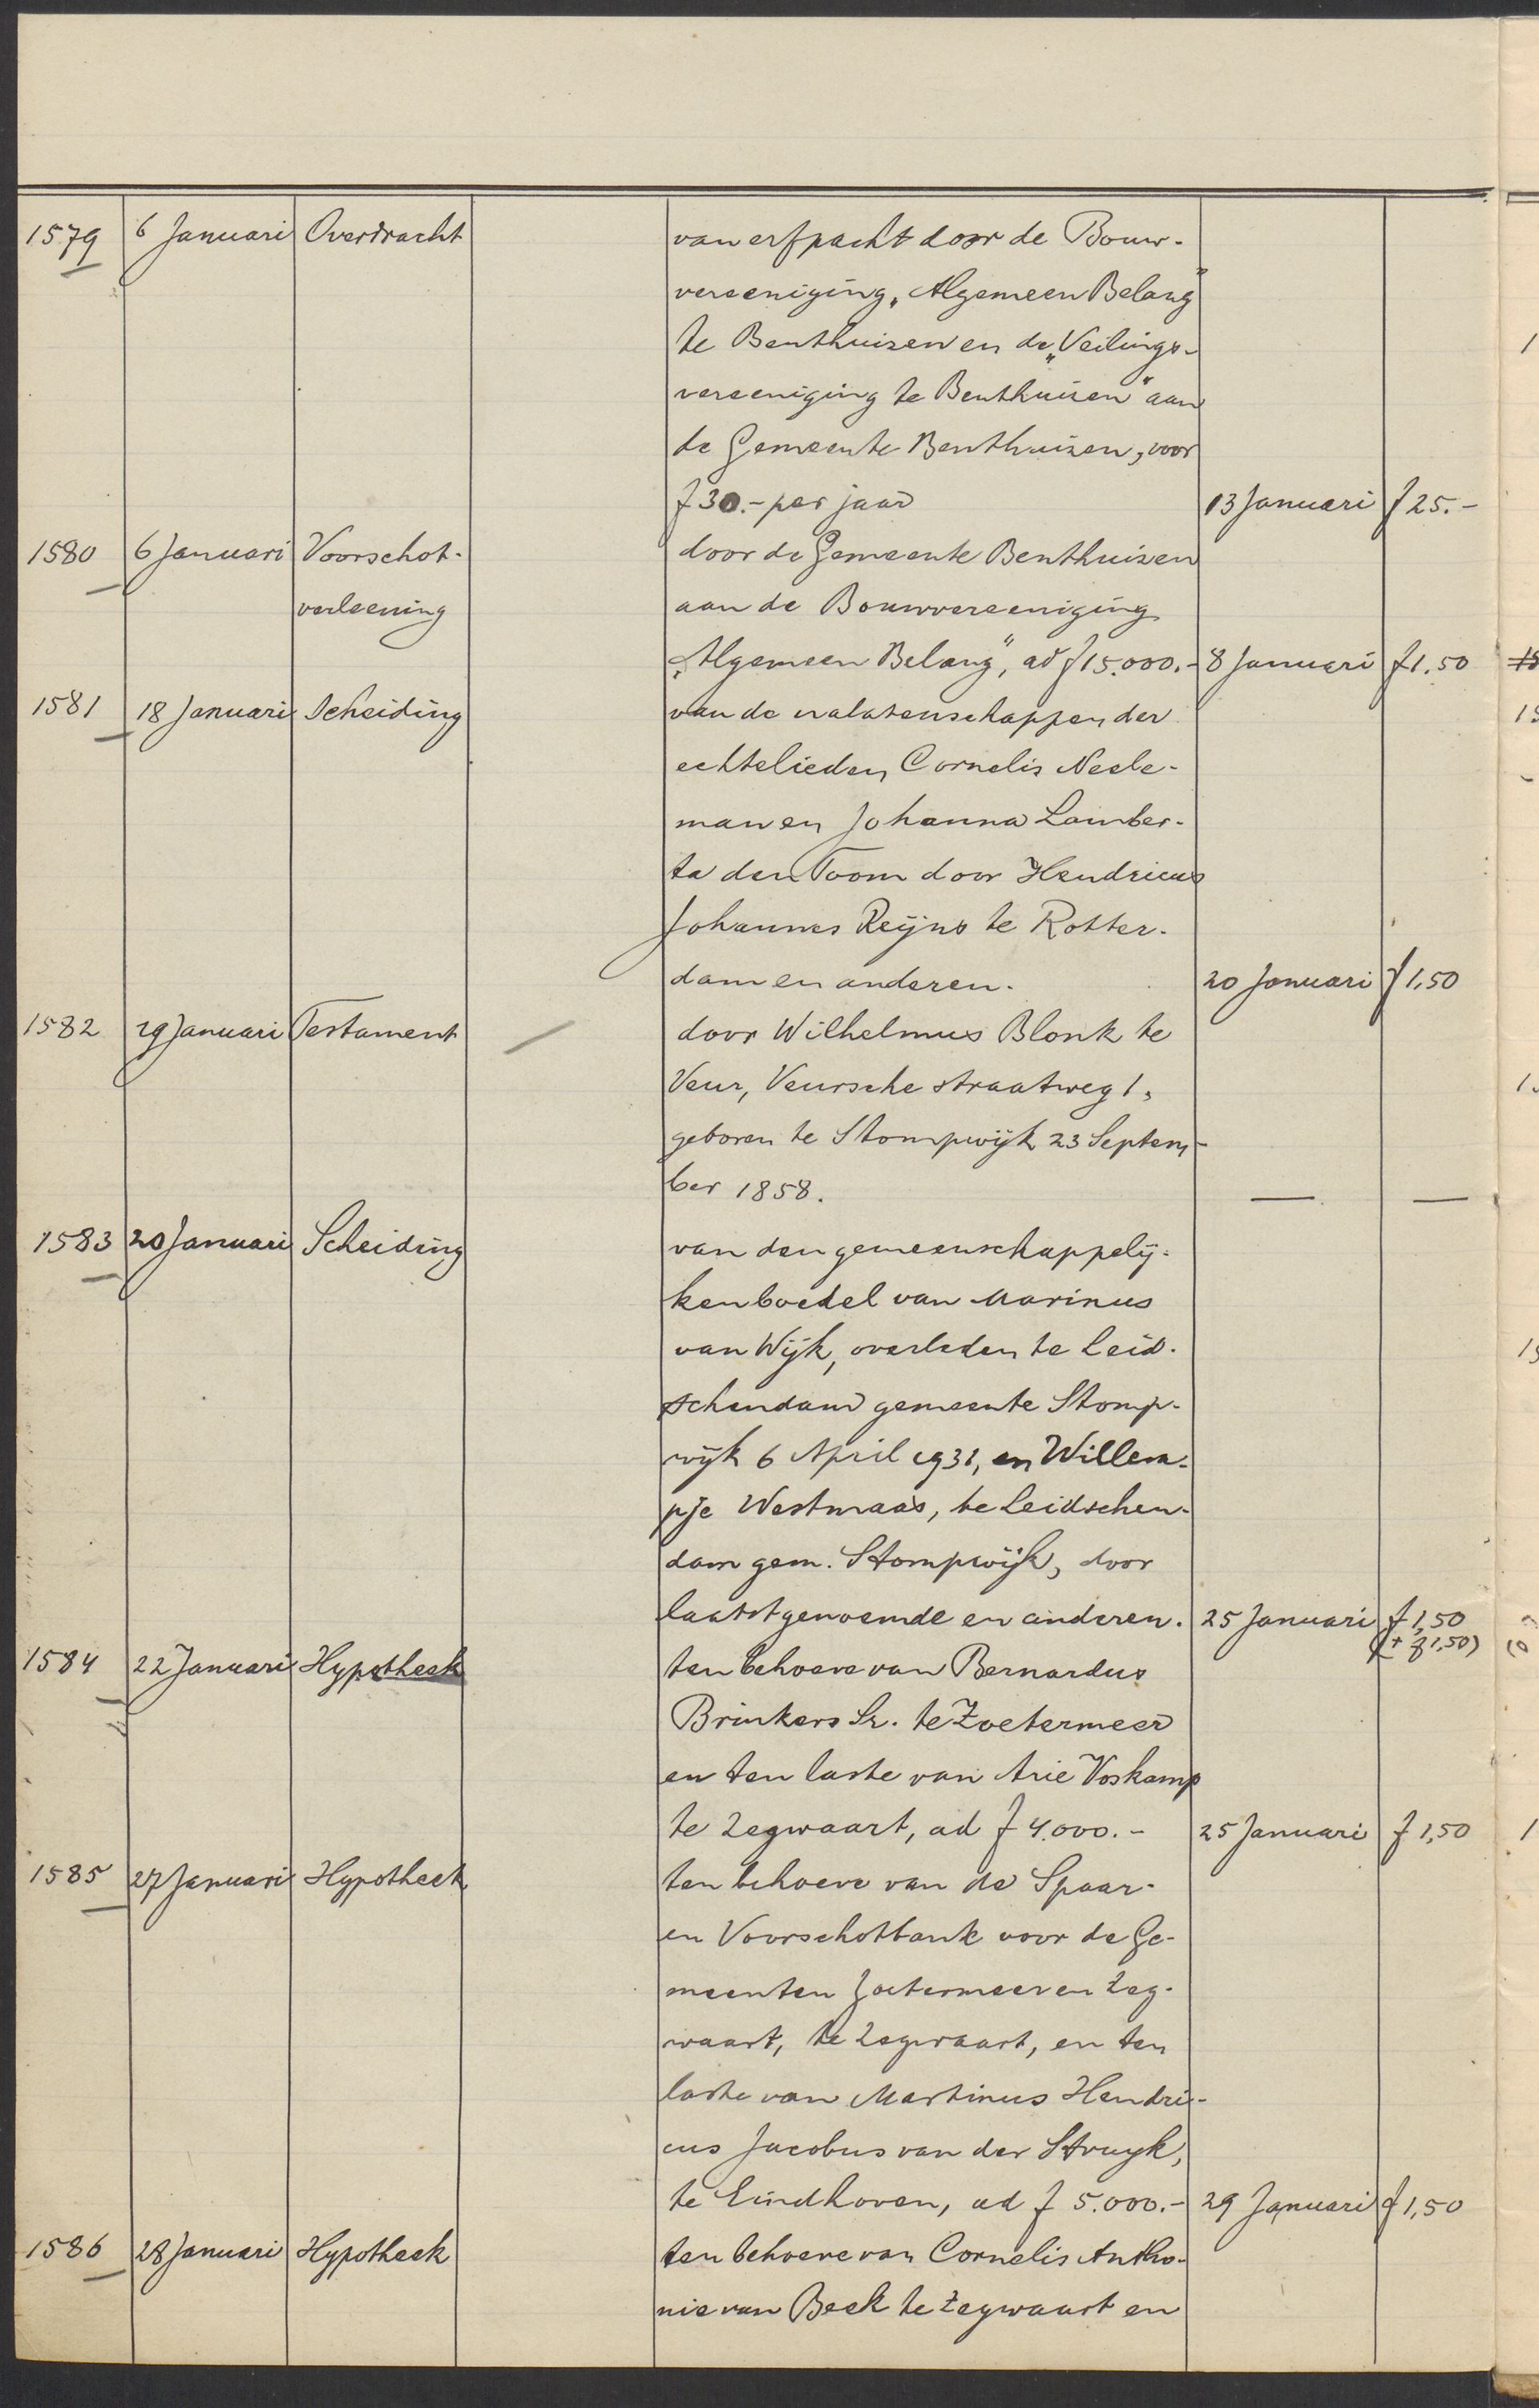 1579 6 Januari Overdracht van erfpacht door de Bouw-
vereeniging „Algemeen Belang"
te Benthuizen en de „Veilings-
vereeniging te Benthuizen" aan
de Gemeente Benthuizen, voor
f 30.- per jaar 13 Januari f 25.-
1580 6 Januari Voorschot- door de Gemeente Benthuizen
verleening aan de Bouwvereeniging
„Algemeen Belang", ad f 15.000.- 8 Januari f 1.50
1581 18 Januari Scheiding van de nalatenschappen der
echtelieden Cornelis Neele-
man en Johanna Lamber-
ta den Toom door Hendricus
Johannes Reijns te Rotter-
dam en anderen. 20 Januari f 1,50
1582 19 Januari Testament door Wilhelmus Blonk te
Veur, Veursche straatweg 1,
geboren te Stompwijk 23 Septem-
ber 1858. — —
1583 20 Januari Scheiding van den gemeenschappelij-
ken boedel van Marinus
van Wijk, overleden te Leid-
schendam gemeente Stomp-
wijk 6 April 1931, en Willem-
pje Westmaas, te Leidschen-
dam gem. Stompwijk, door
laatstgenoemde en anderen. 25 Januari f 1,50
(+ f 1,50)
1584 22 Januari Hypotheek ten behoeve van Bernardus
Brinkers Sr. te Zoetermeer
en ten laste van Arie Voskamp
te Zegwaart, ad f 4.000.- 25 Januari f 1,50
1585 27 Januari Hypotheek ten behoeve van de Spaar-
en Voorschotbank voor de Ge-
meenten Zoetermeer en Zeg-
waart, te Zegwaart, en ten
laste van Martinus Hendri-
cus Jacobus van der Struyk,
te Eindhoven, ad f 5.000.- 29 Januari f 1,50
1586 28 Januari Hypotheek ten behoeve van Cornelis Antho-
nie van Beek te Zegwaart en